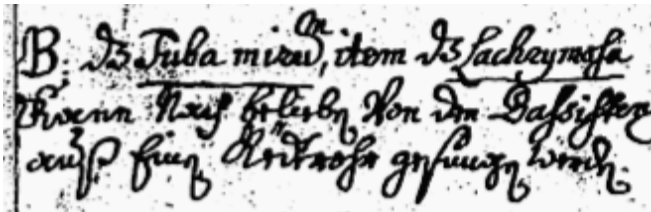 B: dz Tuba mirum, item dz Lachrymosa
kann Nach belieben Von den Bassisten
auß Einem gesungen werden.